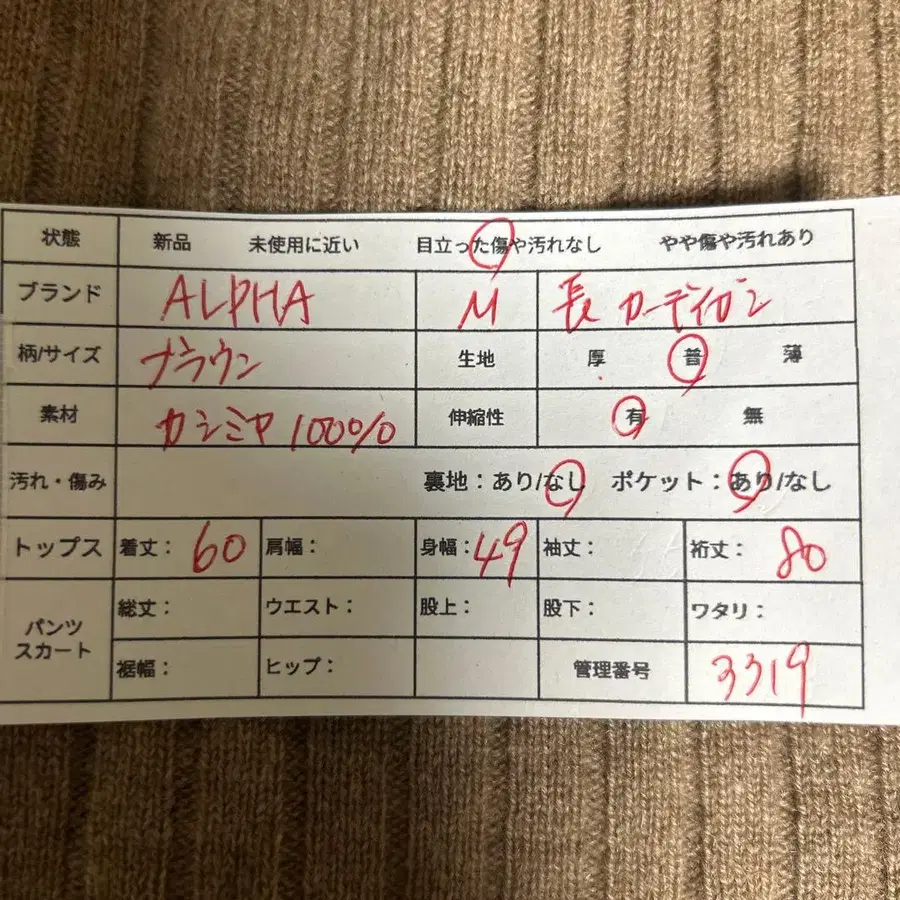 状態 新品 未使用に近い 目立った傷や汚れなし やや傷や汚れあり
ブランド ALPHA M 長カーディガン
柄/サイズ ブラウン 生地 厚 普 薄
素材 カシミヤ 100% 伸縮性 有 無
汚れ・傷み 裏地：あり/なし ポケット：あり/なし
トップス 着丈： 60 肩幅： 身幅： 49 袖丈： 裄丈： 80
パンツ スカート 総丈： ウエスト： 股上： 股下： ワタリ：
裾幅： ヒップ： 管理番号 3319